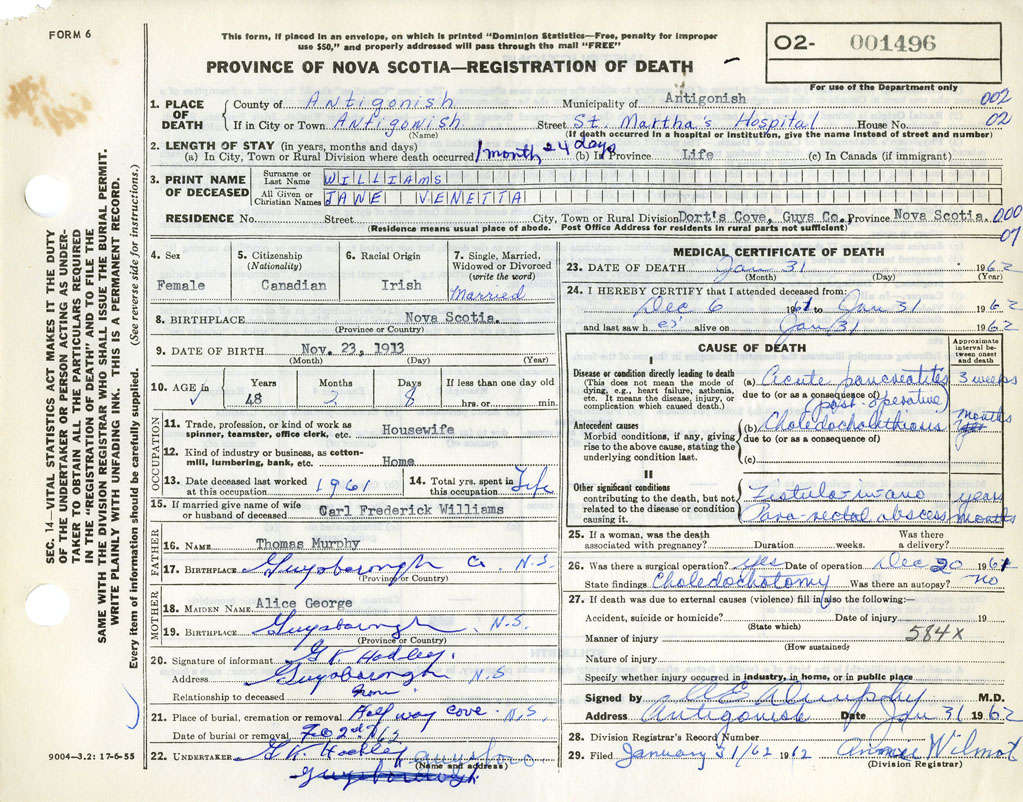 FORM 6
This form, if placed in an envelope, on which is printed "Dominion Statistics—Free, penalty for improper
use $50," and properly addressed will pass through the mail "FREE"
PROVINCE OF NOVA SCOTIA—REGISTRATION OF DEATH
O2- 001496
For use of the Department only
1. PLACE OF DEATH { County of Antigonish Municipality of Antigonish 002
If in City or Town Antigonish Street St. Martha's Hospital House No. 02
(Name) (If death occurred in a Hospital or institution, give the name instead of street and number)
2. LENGTH OF STAY (in years, months and days)
(a) In City, Town or Rural Division where death occurred 1 month 24 days (b) In Province Life (c) In Canada (if immigrant)
3. PRINT NAME OF DECEASED { Surname or Last Name WILLIAMS
All Given or Christian Names JANE VENETTA
RESIDENCE No. Street City, Town or Rural Division Dort's Cove, Guys Co. Province Nova Scotia. 000
(Residence means usual place of abode. Post Office Address for residents in rural parts not sufficient) 07
4. Sex Female
5. Citizenship (Nationality) Canadian
6. Racial Origin Irish
7. Single, Married, Widowed or Divorced (write the word) Married
8. BIRTHPLACE Nova Scotia.
(Province or Country)
9. DATE OF BIRTH Nov. 23, 1913
(Month) (Day) (Year)
10. AGE in Years 48 Months 2 Days 8 If less than one day old hrs. or min.
OCCUPATION
11. Trade, profession, or kind of work as spinner, teamster, office clerk, etc. Housewife
12. Kind of industry or business, as cotton-mill, lumbering, bank, etc. Home
13. Date deceased last worked at this occupation 1961 14. Total yrs. spent in this occupation Life
15. If married give name of wife or husband of deceased Carl Frederick Williams
FATHER
16. NAME Thomas Murphy
17. BIRTHPLACE Guysborough Co. N.S.
(Province or Country)
MOTHER
18. MAIDEN NAME Alice George
19. BIRTHPLACE Guysborough N.S.
(Province or Country)
20. Signature of informant G K Hadley.
Address Guysborough N.S
Relationship to deceased None
21. Place of burial, cremation or removal Half way Cove. N.S.
Date of burial or removal Feb 2nd /62
22. UNDERTAKER G.K. Hadley Guysboro
(Name and address)
Guysborough
9004—3.2: 17-6-55
MEDICAL CERTIFICATE OF DEATH
23. DATE OF DEATH Jan 31 1962
(Month) (Day) (Year)
24. I HEREBY CERTIFY that I attended deceased from:
Dec 6 1961 to Jan 31 1962
and last saw her alive on Jan 31 1962
CAUSE OF DEATH
Approximate interval between onset and death
I
Disease or condition directly leading to death
(This does not mean the mode of dying, e.g., heart failure, asthenia, etc. It means the disease, injury, or complication which caused death.)
(a) Acute pancreatitis 3 weeks
due to (or as a consequence of) (post-operative)
Antecedent causes
Morbid conditions, if any, giving rise to the above cause, stating the underlying condition last.
(b) Choledocholithiasis months
due to (or as a consequence of)
(c)
II
Other significant conditions
contributing to the death, but not related to the disease or condition causing it.
Fistula-in-ano years
Para-rectal abscess months
25. If a woman, was the death associated with pregnancy? Duration weeks. Was there a delivery?
26. Was there a surgical operation? yes Date of operation Dec 20 1961
State findings Choledochotomy Was there an autopsy? no
27. If death was due to external causes (violence) fill in also the following:—
Accident, suicide or homicide? Date of injury 19
(State which)
Manner of injury 584x
(How sustained)
Nature of injury
Specify whether injury occurred in industry, in home, or in public place
Signed by M.D.
Address Antigonish Date Jan 31 1962
28. Division Registrar's Record Number
29. Filed January 31/62 1962 Annie Wilmot
(Division Registrar)
SEC. 14—VITAL STATISTICS ACT MAKES IT THE DUTY
OF THE UNDERTAKER OR PERSON ACTING AS UNDER-
TAKER TO OBTAIN ALL THE PARTICULARS REQUIRED
IN THE "REGISTRATION OF DEATH" AND TO FILE THE
SAME WITH THE DIVISION REGISTRAR WHO SHALL ISSUE THE BURIAL PERMIT.
WRITE PLAINLY WITH UNFADING INK. THIS IS A PERMANENT RECORD.
Every item of information should be carefully supplied. (See reverse side for instructions.)